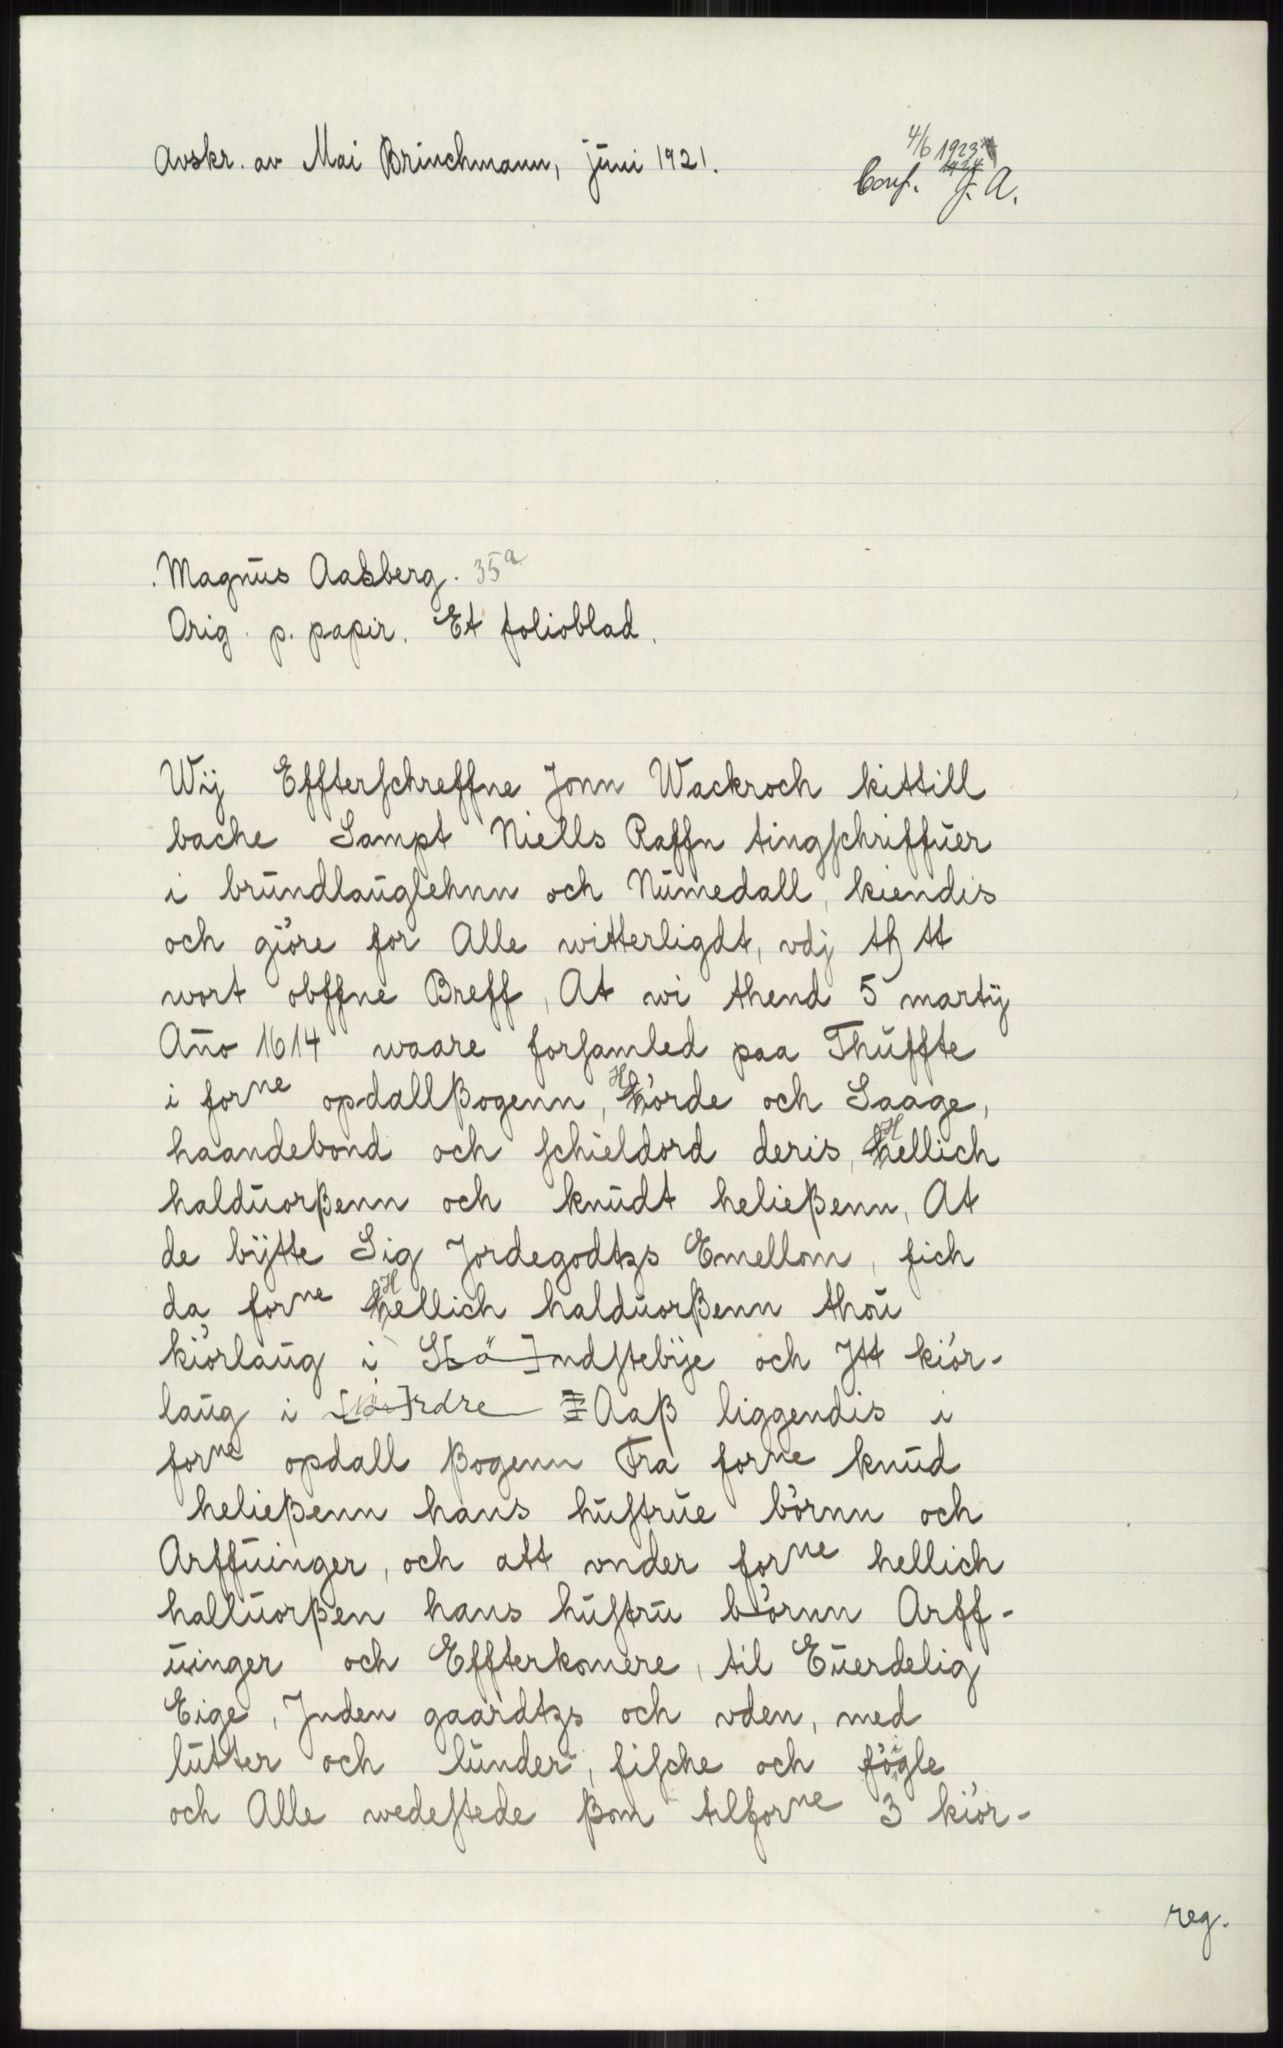 Avskr. av Mai Brinchmann, juni 1921.
4/6 1923
Conf. J. A.
Magnus Aasberg. 35a
Orig. p. papir. Et folioblad.
Wij Effterschreffne Jonn Wackroch kittill
bache Sampt Niells Raffn tingschriffuer
i brundlauglehnn och Numedall, kiendis
och giöre for Alle witterligdt, vdj
wort obffne Breff, At wi thend 5 martij
Año 1614 waare forsamled paa Thuffte
i forne opdallßogenn, Hörde och Saage,
haandebond och schieldord deris, Hellich
halduorßenn och knudt heließenn, At
de bijtte Sig Jordegodtzs Emellom, fich
da forne Hellich halduorßenn thou
kiörlaug i S[ö]ndstebije och Jtt kiör-
laug i rdre Aaß liggendis i
forne opdall ßogenn Fra forne knud
heließenn hans hustrue börnn och
Arffuinger, och att vnder forne hellich
halluorßen hans hustru börnn Arff-
uinger och Effterkomere, til Euerdelig
Eige, Jnden gaardtzs och vden, med
lutter och lunder, fische och fögle
och Alle wedestede ßom tilforne 3 kiör-
reg.